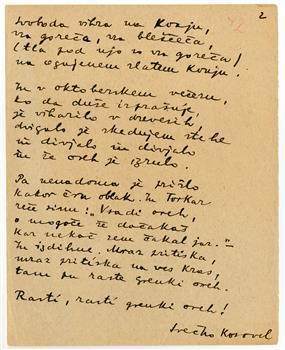 2
Svoboda vihra na konju,
vsa goreča, vsa bleščeča,
(tla pod njo so vsa goreča)
na ognjenem zlatem konju.
In v oktoberskem večeru,
ko da duše izprašuje,
je viharilo v drevesih,
dvigalo je skednjem strehe
in divjalo in divjalo
in še oreh je izrulo.
Pa nenadoma je prišlo
kakor črn oblak. In Torkar
reče sinu: "Vsadi oreh,
mogoče še dočakaš
kar nekoč sem čakal jaz."
In izdihne. Mraz pritiska,
mraz pritiska na ves Kras,
tam pa raste grenki oreh.
Rasti, rasti grenki oreh!
Srečko Kosovel